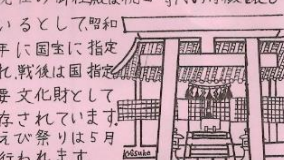 いるとして、昭和
年に国宝に指定
れ、戦後は国指定
要文化財として
存されています。
えび祭りは5月
行われます